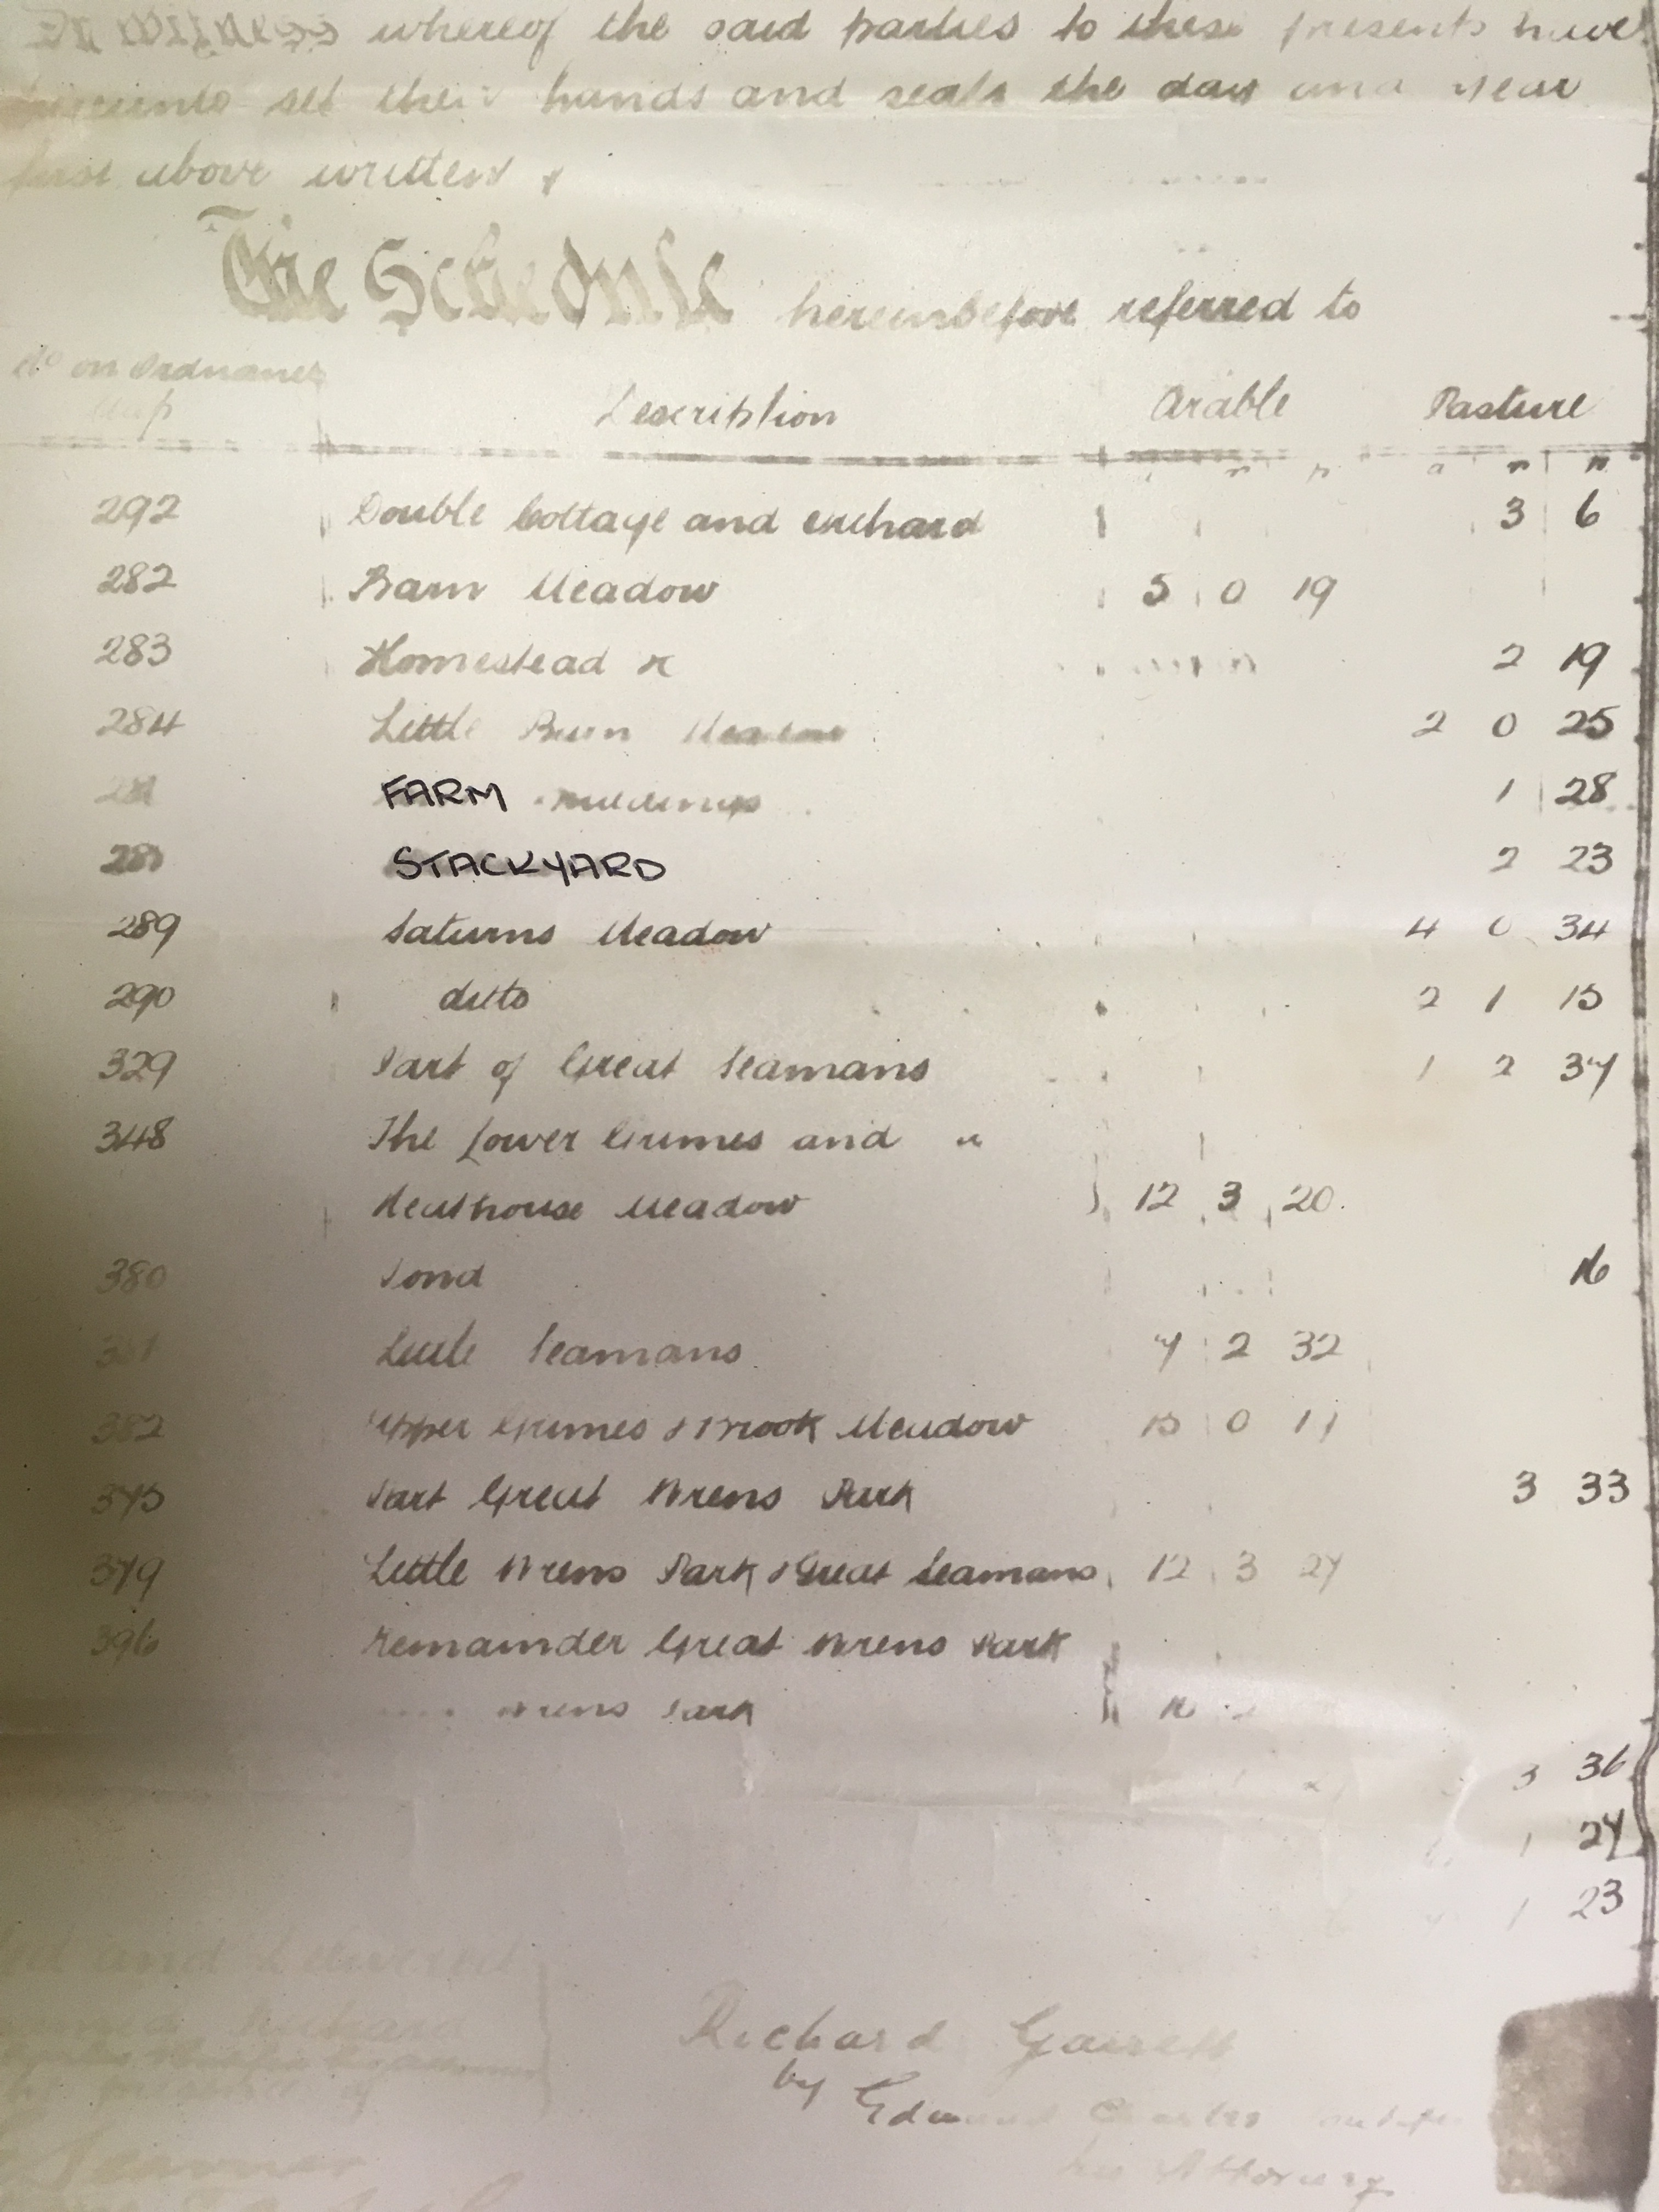 In Witness whereof the said parties to these presents have
hereunto set their hands and seals the day and year
first above written
The Schedule hereinbefore referred to
No on Ordnance
Map
Description Arable Pasture
r p a r p
292 Double Cottage and orchard 3 6
282 Barn Meadow 5 0 19
283 Homestead &c 2 19
284 Little Barn Meadow 2 0 25
FARM Buildings 1 28
STACKYARD 2 23
289 Saturns Meadow 4 0 34
290 ditto 2 1 15
329 Part of Great Seamans 1 2 37
348 The Lower Grimes and
Meadow 12 3 20
380 Pond 16
Little Seamans 7 2 32
382 Upper Grimes & Brook Meadow 15 0 11
375 Part Great Wrens Park 3 33
379 Little Wrens Park & Great Seamans 12 3 27
396 Remainder Great Wrens Park
Wrens Park
3 36
1 27
1 23
and Delivered
Richard
presence of
Richard Garrett
by Edmund Charles
his Attorney